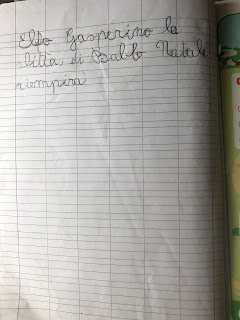 Elfo Gasperino la
città di Babbo Natale
riempirà